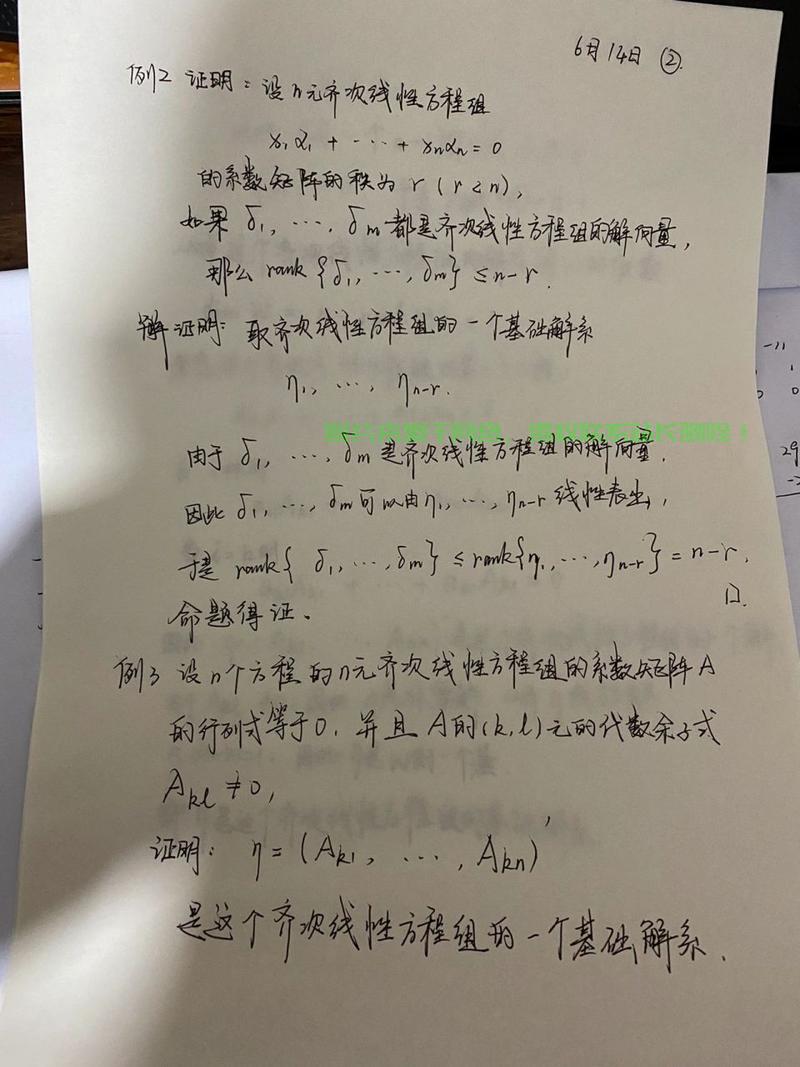 6月14日 ②.
例2 证明:设n元齐次线性方程组
x₁α₁ + ··· + xₙαₙ = 0
的系数矩阵的秩为 r (r<n),
如果 δ₁, ···, δm 都是齐次线性方程组的解向量,
那么 rank {δ₁, ···, δm} ≤ n-r.
解 证明: 取齐次线性方程组的一个基础解系
η₁, ···, ηn-r.
由于 δ₁, ···, δm 是齐次线性方程组的解向量.
因此 δ₁, ···, δm 可以由 η₁, ···, ηn-r 线性表出,
于是 rank{ δ₁, ···, δm} ≤ rank{η₁, ···, ηn-r} = n-r,
命题得证. □.
例3 设n个方程的n元齐次线性方程组的系数矩阵A
的行列式等于0, 并且 A的(k,l)元的代数余子式
Akl ≠ 0,
证明: η = (Ak1, ···, Akn)'
是这个齐次线性方程组的一个基础解系.
-11
1
0 0
29